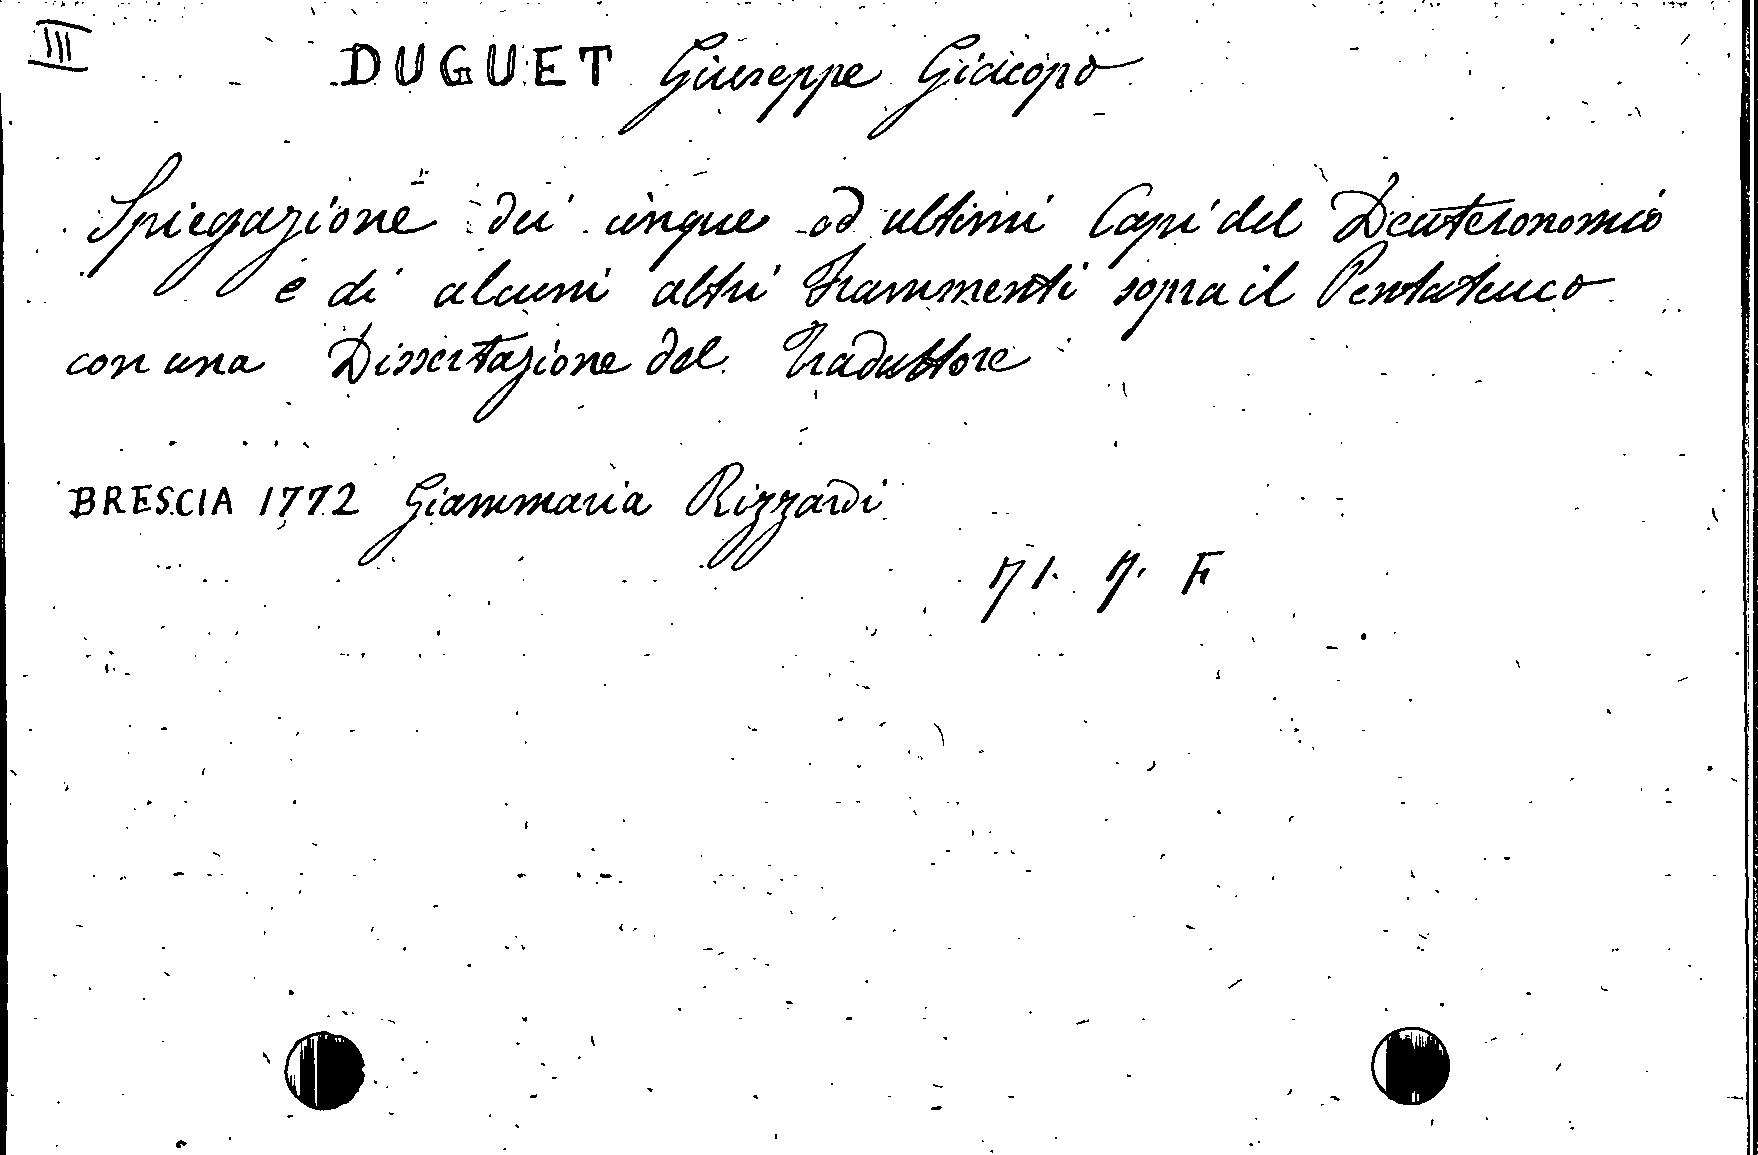 III
DUGUET Giuseppe Giacopo
Spiegazione dei cinque od ultimi Capi del Deuteronomio
e di alcuni altri frammenti sopra il Pentateuco
con una Dissertazione del Traduttore
BRESCIA 1772 Giammaria Rizzardi
71. 7. F